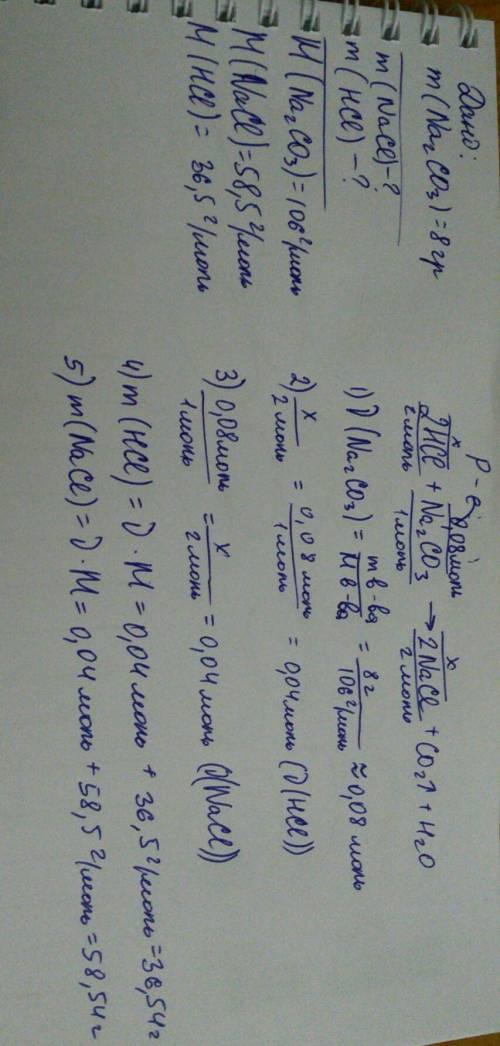 Дано:
m(Na₂CO₃)=8гр
m(NaCl)-?
m(HCl)-?
M(Na₂CO₃)=106г/моль
M(NaCl)=58,5г/моль
M(HCl)=36,5г/моль
Р-е
x 0,08моль x
2HCl + Na₂CO₃ → 2NaCl + CO₂↑ + H₂O
2моль 1моль 2моль
1) ν(Na₂CO₃) = m в-ва / M в-ва = 8г / 106г/моль ≈ 0,08 моль
2) x / 2моль = 0,08 моль / 1моль = 0,04моль (ν(HCl))
3) 0,08моль / 1моль = x / 2моль = 0,04моль (ν(NaCl))
4) m(HCl) = ν·M = 0,04моль + 36,5г/моль = 36,54г
5) m(NaCl) = ν·M = 0,04моль + 58,5г/моль = 58,54г